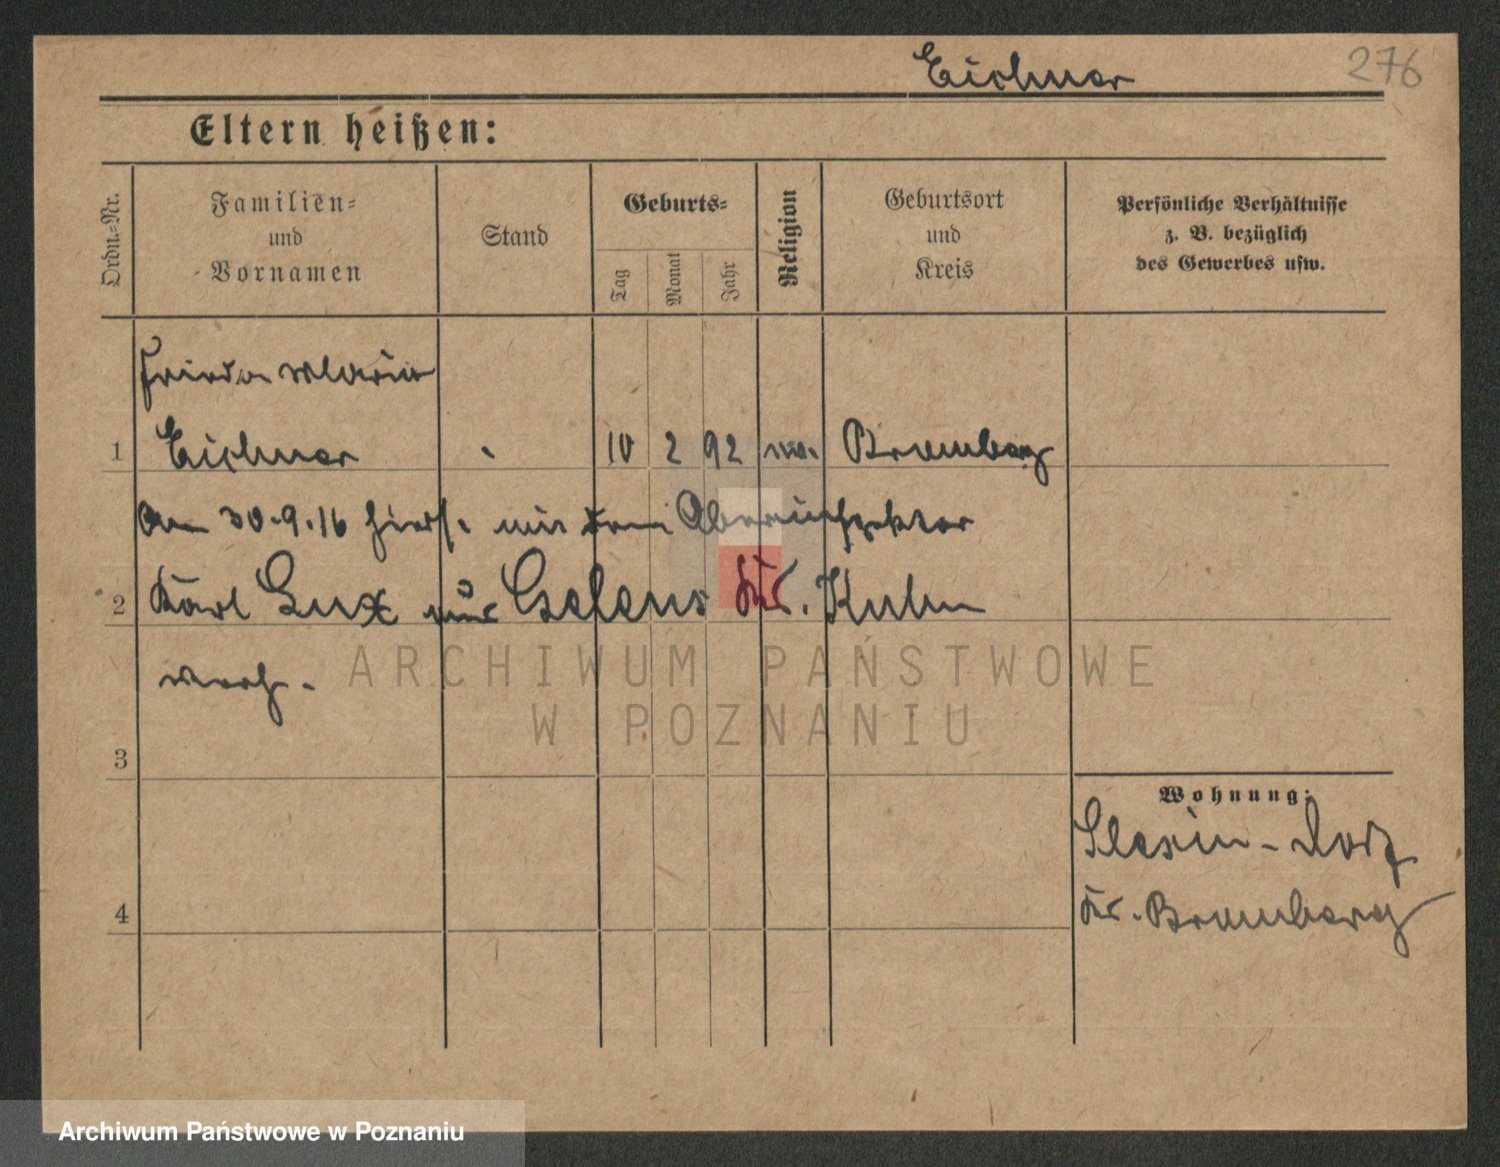 Eichner
276
Eltern heißen:
Ordn.-Nr.
Familien-
und
Vornamen
Stand
Geburts-
Tag
Monat
Jahr
Religion
Geburtsort
und
Kreis
Persönliche Verhältnisse
z. B. bezüglich
des Gewerbes usw.
Frieda Maria
1 Eichner 10 2 92 Bromberg
am 30.9.16 hiers. mit dem Oberinspektor
2 Karl Lux aus Gelens Kr. Kulm
ARCHIWUM PAŃSTWOWE
W POZNANIU
3
Wohnung:
Slesin - Dorf
4 Kr. Bromberg
Archiwum Państwowe w Poznaniu